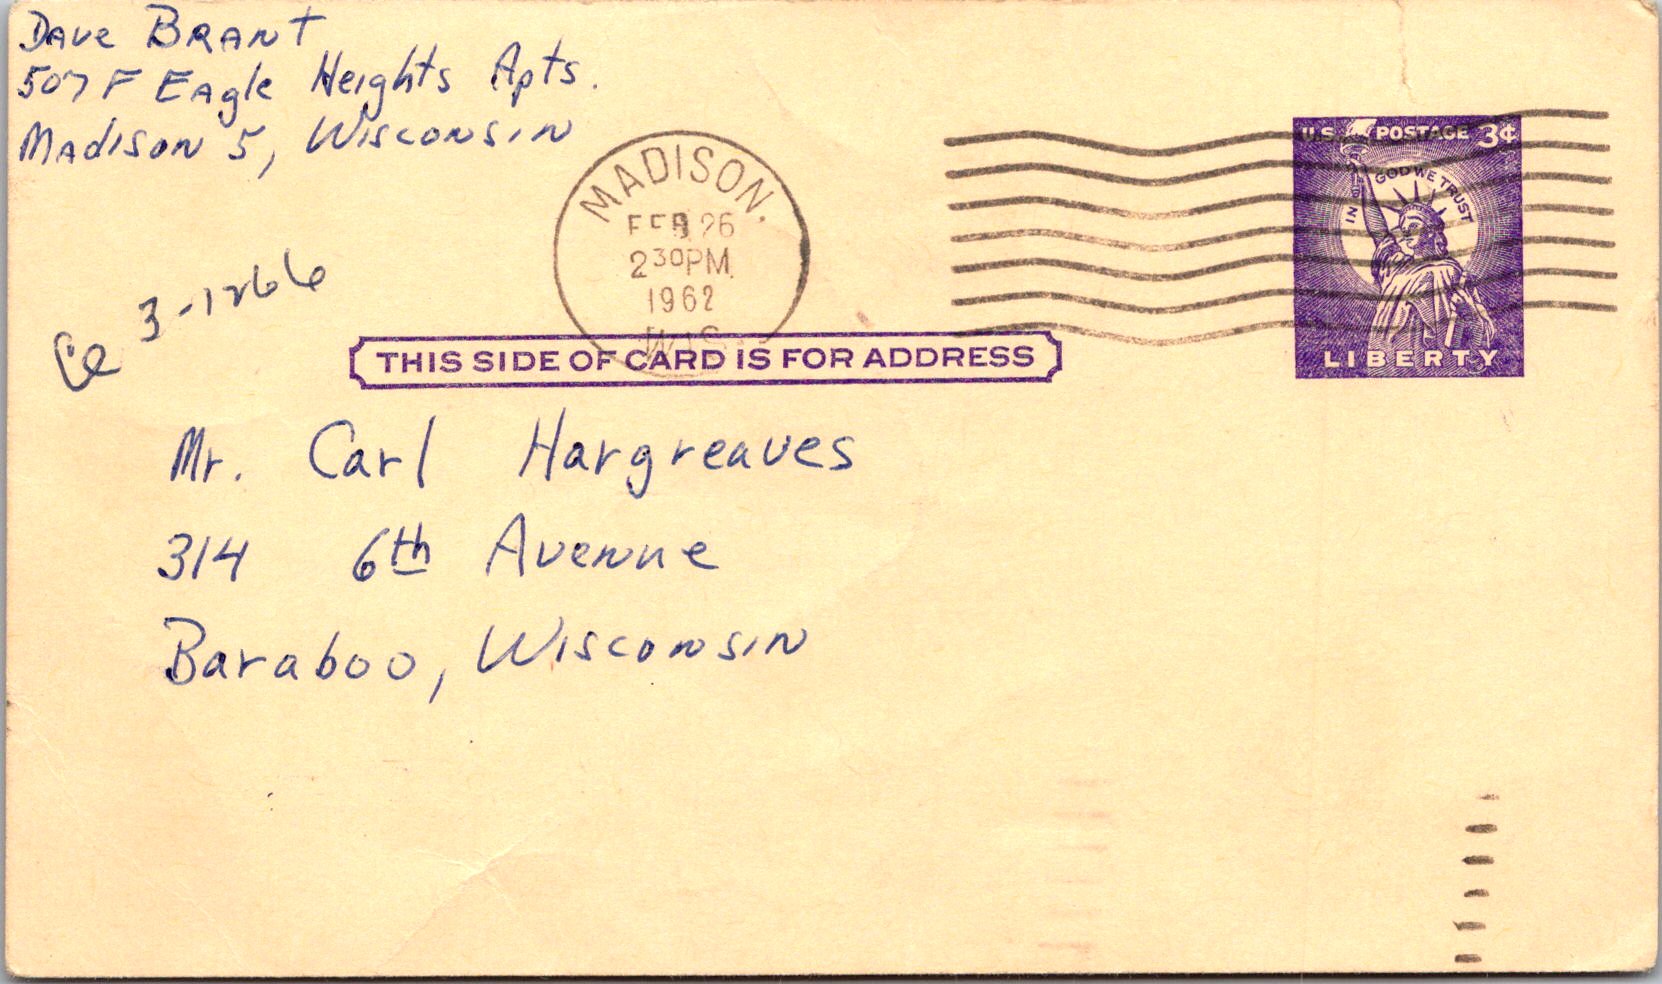 Dave Brant
507 F Eagle Heights Apts.
Madison 5, Wisconsin
MADISON.
FEB 26
2 30 PM
1962
WIS.
U.S. POSTAGE 3¢
IN GOD WE TRUST
LIBERTY
3-1266
THIS SIDE OF CARD IS FOR ADDRESS
Mr. Carl Hargreaves
314 6th Avenue
Baraboo, Wisconsin